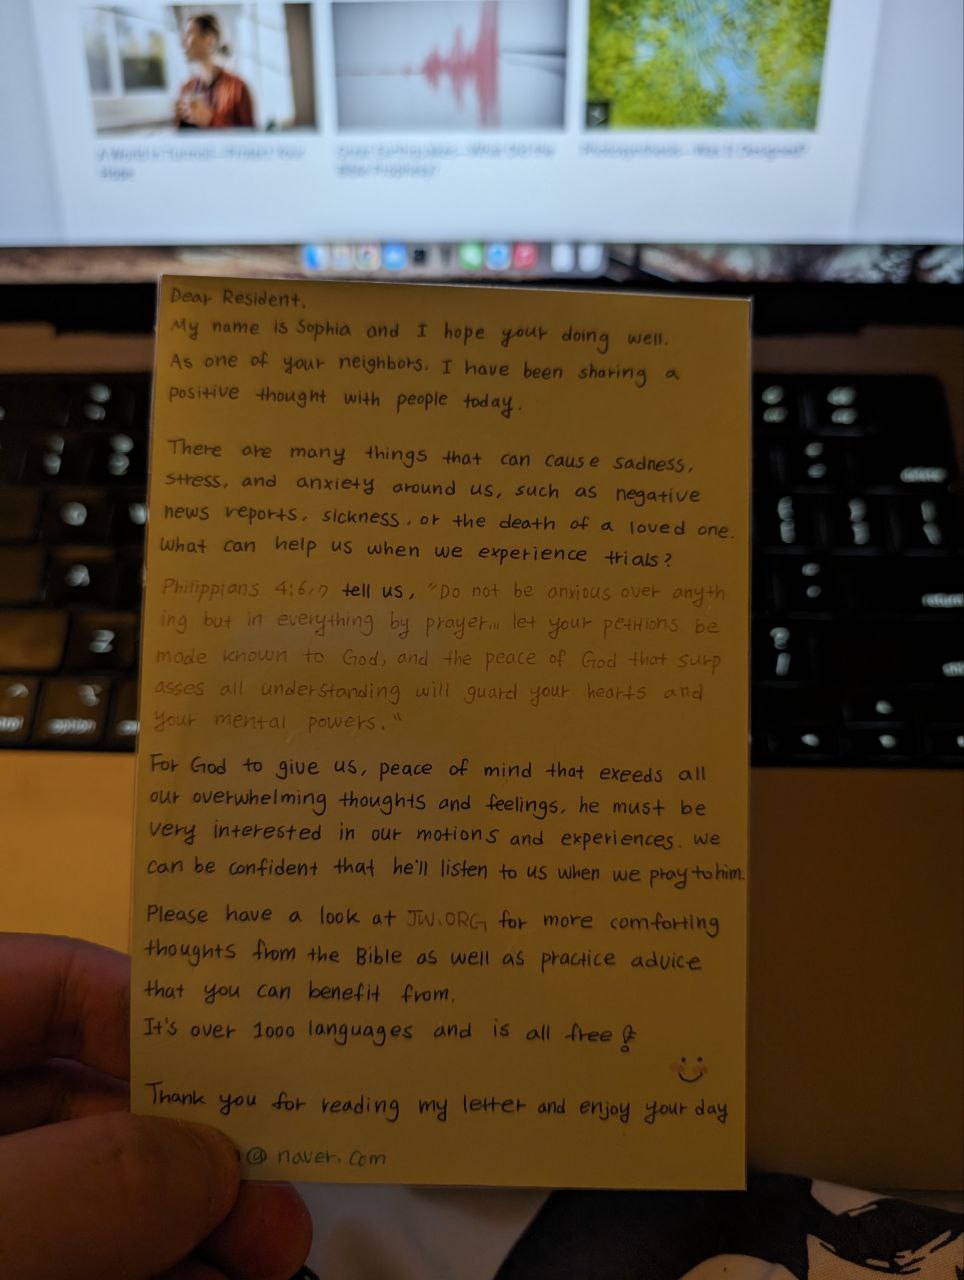 A World in Turmoil—Protect Your
Hope
Great Earthquakes—What Did the
Bible Prophesy?
Photosynthesis—Was It Designed?
Dear Resident,
My name is Sophia and I hope your doing well.
As one of your neighbors, I have been sharing a
positive thought with people today.
There are many things that can cause sadness,
stress, and anxiety around us, such as negative
news reports, sickness, or the death of a loved one.
What can help us when we experience trials?
Philippians 4:6,7 tell us, "Do not be anxious over anyth
ing but in everything by prayer... let your petitions be
made known to God, and the peace of God that surp
asses all understanding will guard your hearts and
your mental powers."
For God to give us, peace of mind that exeeds all
our overwhelming thoughts and feelings, he must be
very interested in our motions and experiences. We
can be confident that he'll listen to us when we pray to him.
Please have a look at JW.ORG for more comforting
thoughts from the Bible as well as practice advice
that you can benefit from.
It's over 1000 languages and is all free!
Thank you for reading my letter and enjoy your day
@naver.com
delete
return
option